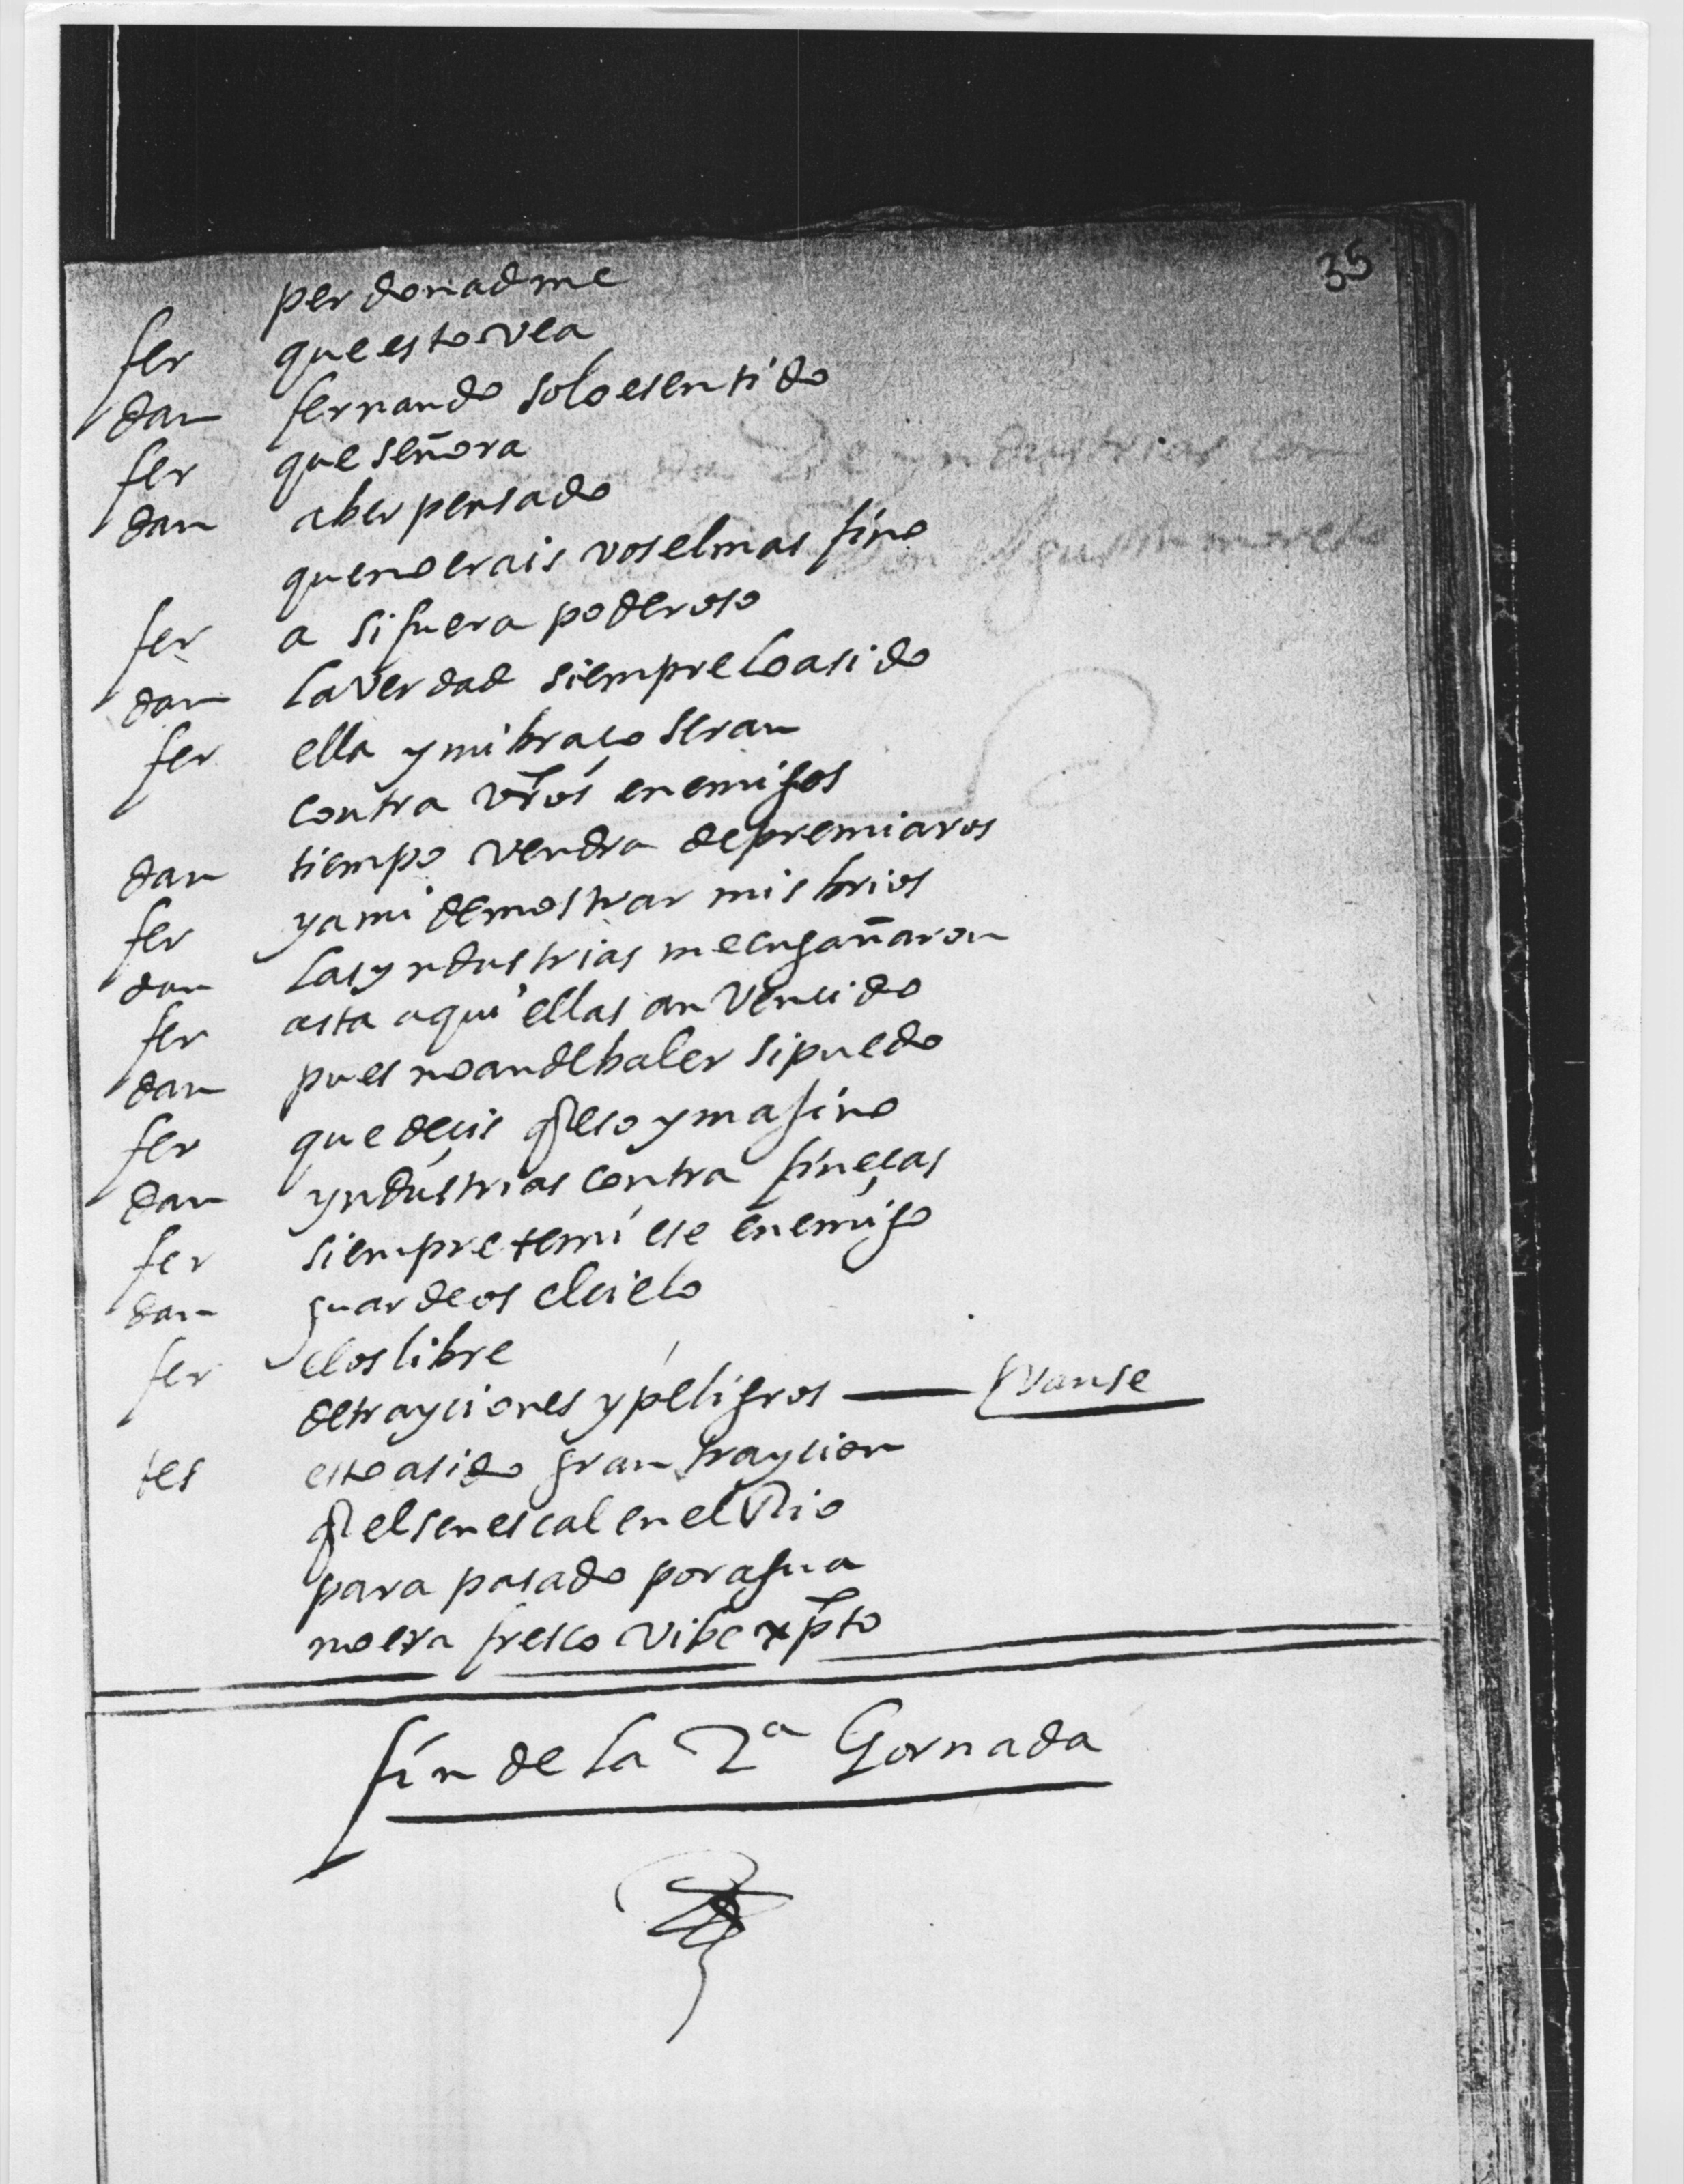 35
perdonadme
fer que esto vea
dan fernando solo e sentido
fer que señora
dan aber pensado
que no erais vos el mas fino
fer a si fuera poderoso
dan la verdad siempre lo a sido
fer ella y mi braço seran
contra vr̃os enemigos
dan tiempo vendra de premiaros
fer y a mi de mostrar mis brios
dan las yndustrias me engañaron
fer asta aqui ellas an vencido
dan pues no an de baler si puedo
fer que deçis q̃ eso ymagino
dan yndustrias contra fineças
fer siempre temi ese enemigo
dan guardeos el cielo
fer el os libre
de trayciones y peligros — Vanse
tes esto a sido gran traycion
q̃ el senescal en el Rio
para pasado por agua
no era fresco vibe xp̃to
fin de la 2a Gornada